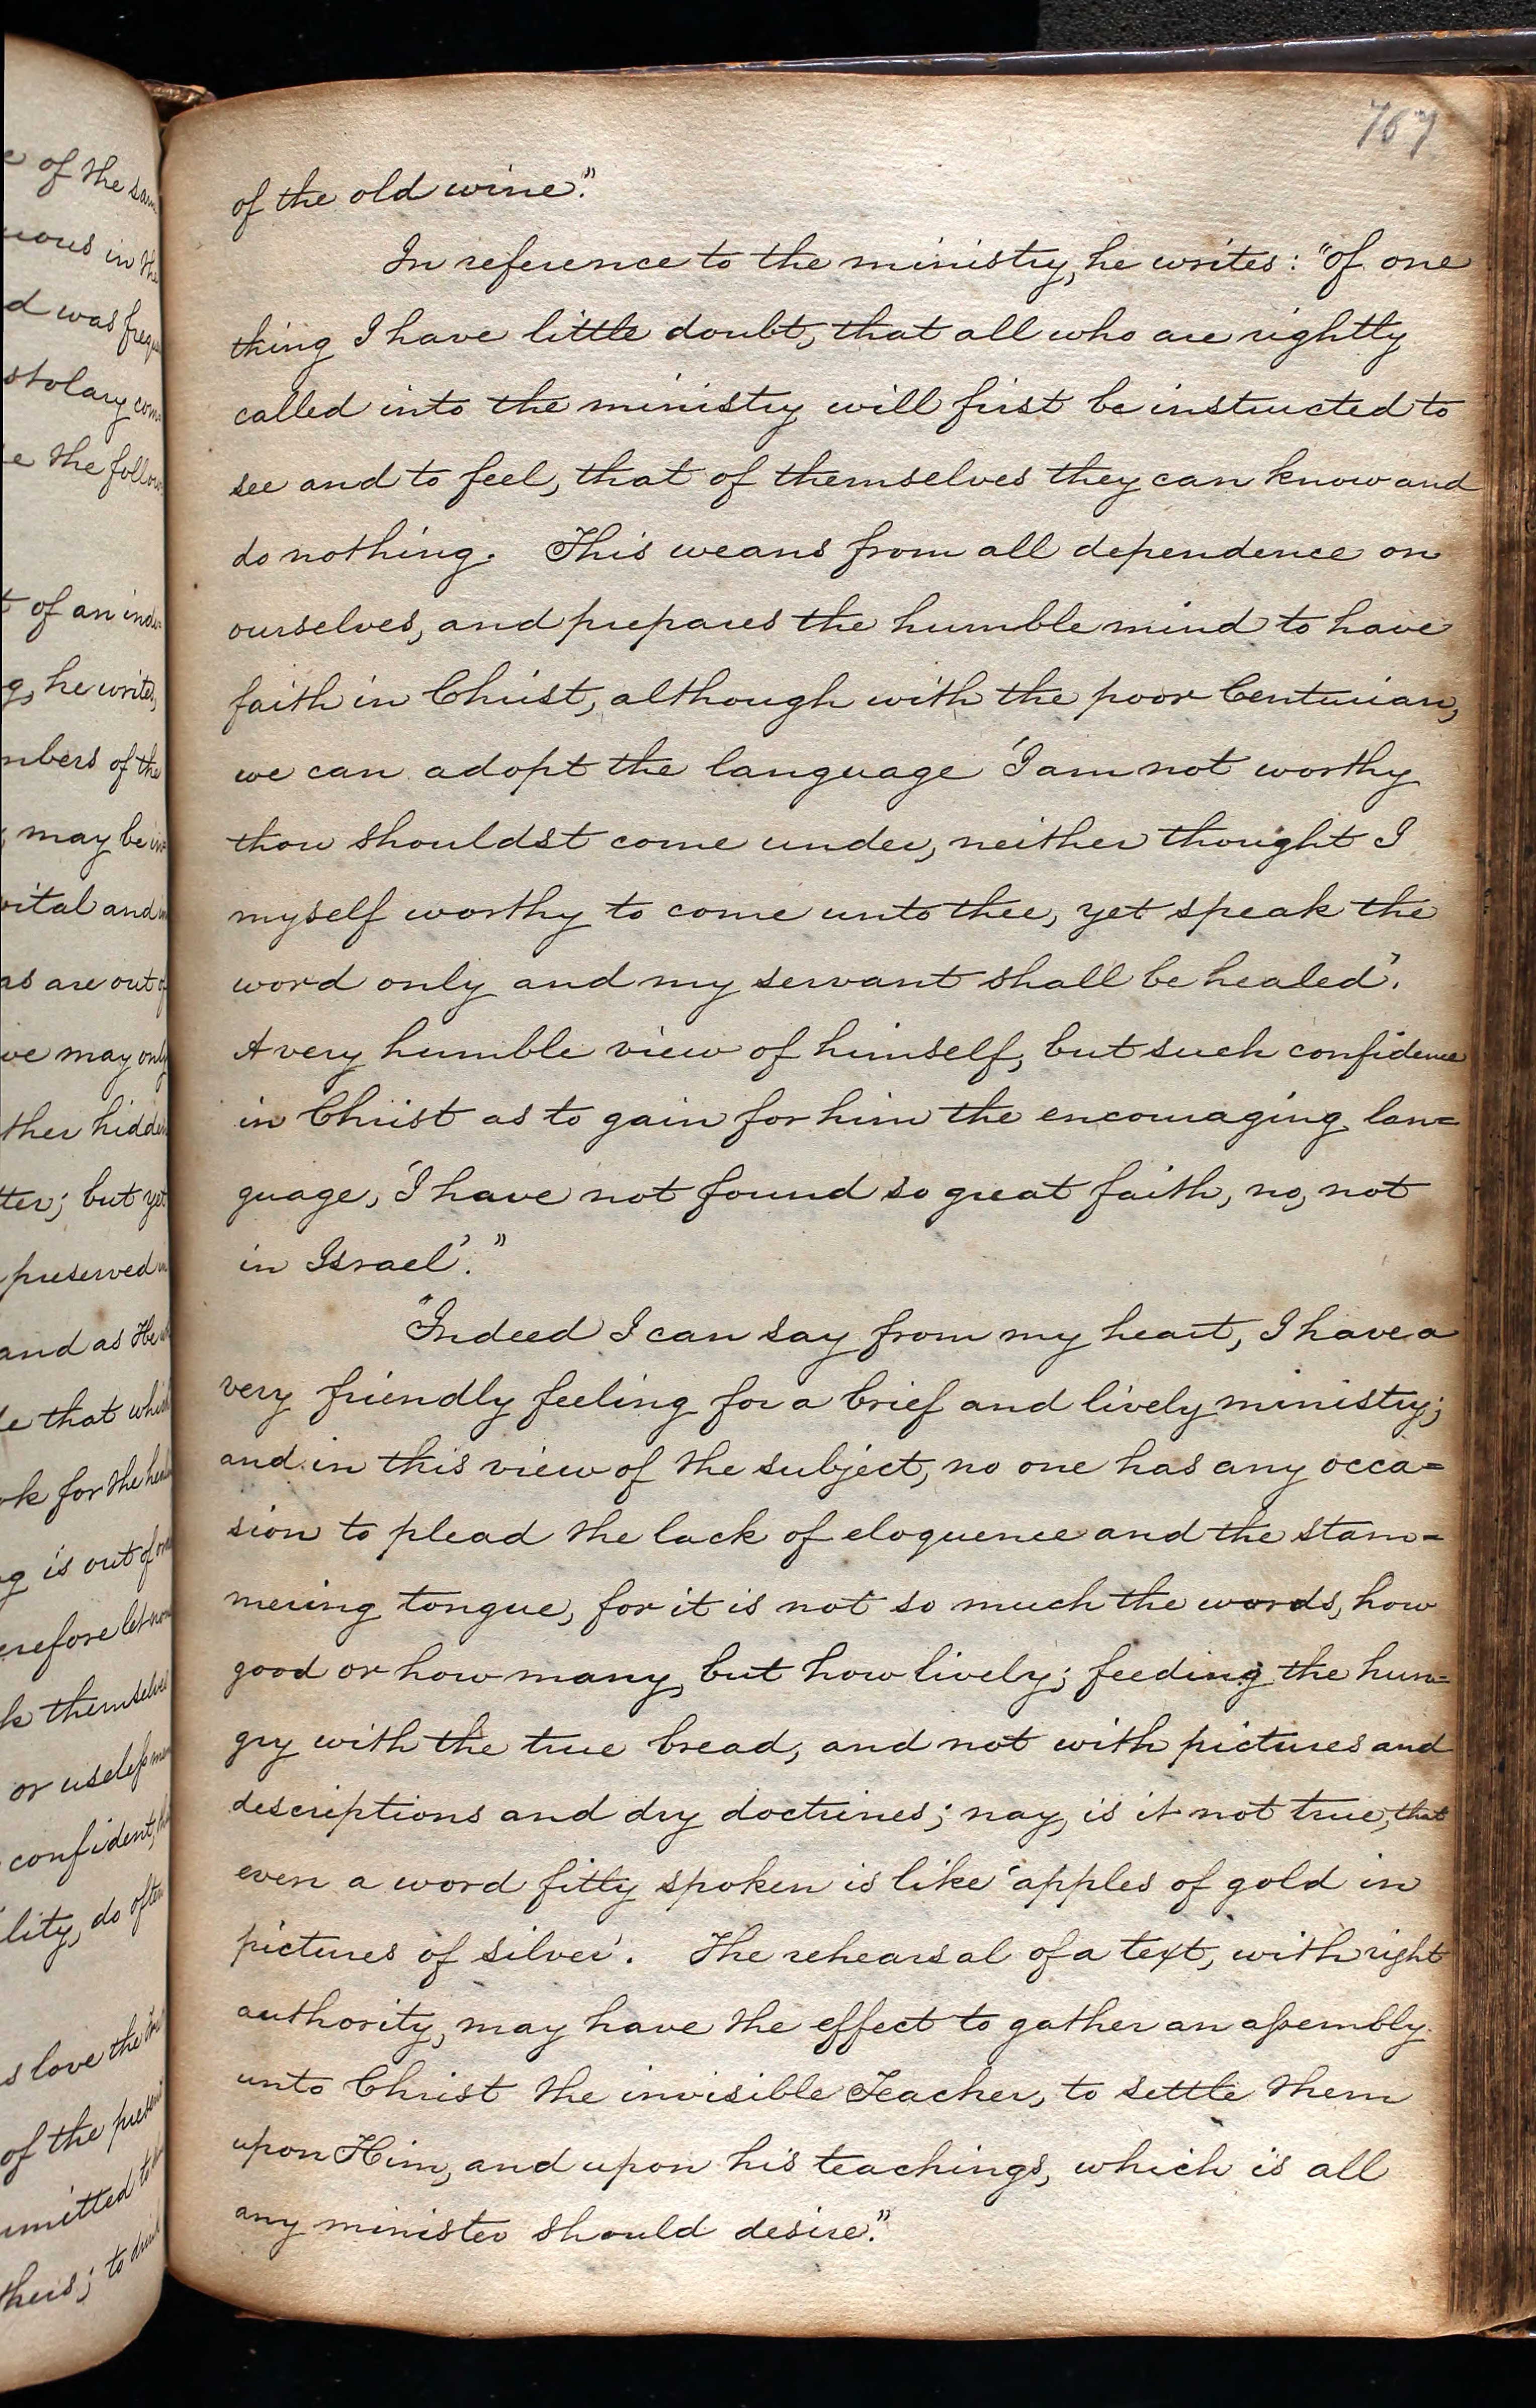 e of the sam
uous in the
d was frequ
stolary com
e the follow
t of an ind
g, he writes,
mbers of the
may be in
vital and in
as are out of
we may only
ther hidden
ter; but yet
preserved in
and as He
le that which
ok for the hea
g is out of
erefore let
k themselves
or useless
confident,
lity, do often
s love the
of the present
mitted to
thers; to drink
767
of the old wine."
In reference to the ministry, he writes: "Of one
thing I have little doubt, that all who are rightly
called into the ministry will first be instructed to
see and to feel, that of themselves they can know and
do nothing. This weans from all dependence on
ourselves, and prepares the humble mind to have
faith in Christ, although with the poor Centurian,
we can adopt the language 'I am not worthy
thou shouldst come under, neither thought I
myself worthy to come unto thee, yet speak the
word only and my servant shall be healed'.
A very humble view of himself, but such confidence
in Christ as to gain for him the encouraging lan=
guage, 'I have not found so great faith, no, not
in Israel'."
"Indeed I can say from my heart, I have a
very friendly feeling for a brief and lively ministry;
and in this view of the subject, no one has any occa=
sion to plead the lack of eloquence and the stam=
mering tongue, for it is not so much the words, how
good or how many, but how lively; feeding the hun=
gry with the true bread, and not with pictures and
descriptions and dry doctrines; nay, is it not true, that
even a word fitly spoken is like 'apples of gold in
pictures of silver'. The rehearsal of a text, with right
authority, may have the effect to gather an assembly
unto Christ the invisible Teacher, to settle them
upon Him, and upon his teachings, which is all
any minister should desire."